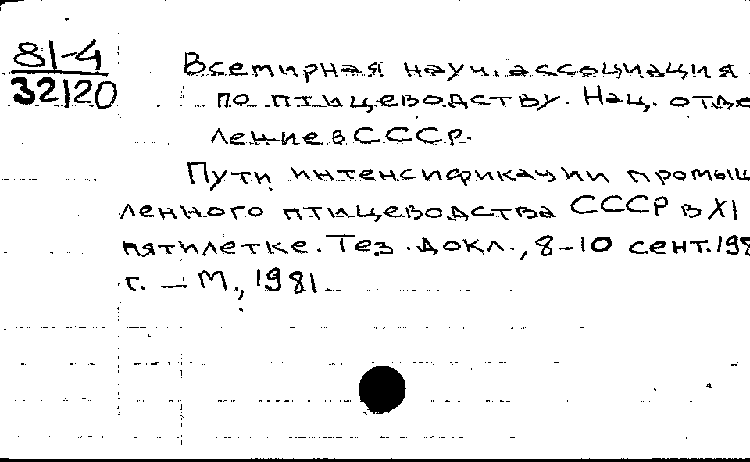 81-4
32120
Всемирная науч. ассоциация
по птицеводству. Нац. отде
ление в СССР.
Пути интенсификации промыш
ленного птицеводства СССР в XI
пятилетке. Тез. докл., 8-10 сент. 198
г. — М., 1981